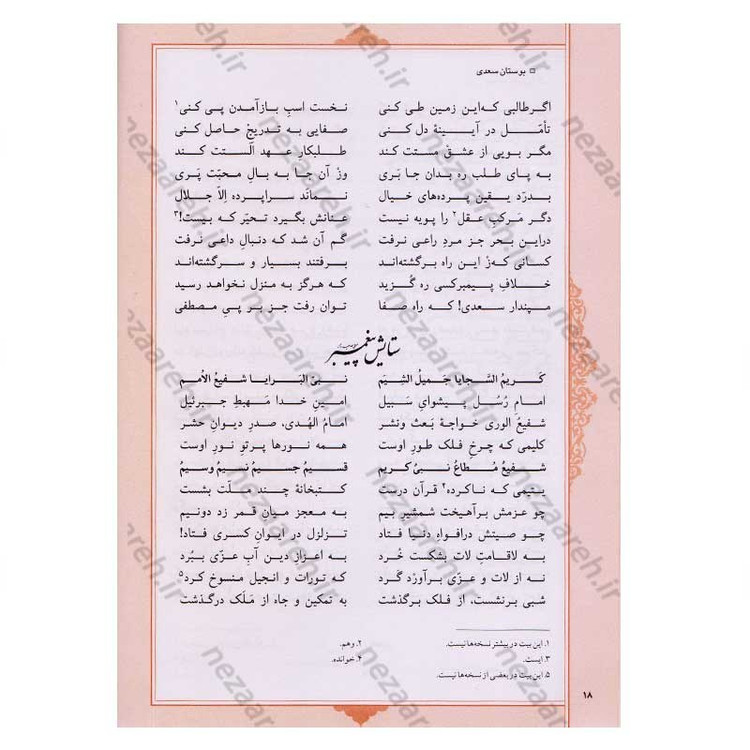 بوستان سعدی
اگر طالبی که‌این زمین طی کنی نخست اسبِ بازآمدن پی کنی۱
تأمّل در آیینهٔ دل کنی صفایی به تدریجْ حاصل کنی
مگر بویی از عشق مستت کند طلبکارِ عهدِ اَلَستت کند
به پای طلب ره بدان جا بَری وز آن جا به بالِ محبّت پَری
بدرّد یقین پرده‌های خیال نمانَد سراپرده اِلاّ جلال
دگر مَرکبِ عقل۲ را پویه نیست عنانش بگیرد تحیّر که بیست!۳
دراین بحر جز مردِ راعی نرفت گم آن شد که دنبالِ داعی نرفت
کسانی که‌زْ این راه برگشته‌اند برفتند بسیار و سرگشته‌اند
خلافِ پیمبر کسی ره گُزید که هرگز به منزل نخواهد رسید
مپندار سعدی! که راه صفا توان رفت جز بر پی مصطفی
ستایش پیغمبر
کَریمُ السَّجایا جَمیلُ الشِیَم نَبیّ البَرایا شفیعُ الاُمم
امام رُسُل، پیشوایِ سَبیل امینِ خدا مَهبِطِ جبرئیل
شفیعُ الوری خواجهٔ بَعث ونشر امامُ الهُدی، صدرِ دیوانِ حشر
کلیمی که چرخِ فلک طورِ اوست همه نورها پرتوِ نورِ اوست
شفیعُ مُطاعُ نَبیُّ کریم قسیمُ جسیمُ نسیمُ وسیمُ
یتیمی که ناکرده۴ قرآن درست کتبخانهٔ چند ملّت بشست
چو عزمش برآهیخت شمشیرِ بیم به معجز میانِ قمر زد دونیم
چو صیتش درافواهِ دنیا فتاد تزلزل در ایوانِ کسری فتاد!
به لاقامتِ لات بشکست خُرد به اعزازِ دین آبِ عزّی ببُرد
نه از لات و عزّی برآورْد گَرد که تورات و انجیل منسوخ کرد۵
شبی برنشست، از فلک برگذشت به تمکین و جاه از مَلَک درگذشت
۱. این بیت در بیشتر نسخه‌ها نیست. ۲. وهم.
۳. ایست. ۴. خوانده.
۵. این بیت در بعضی از نسخه‌ها نیست.
۱۸
nezaareh.ir